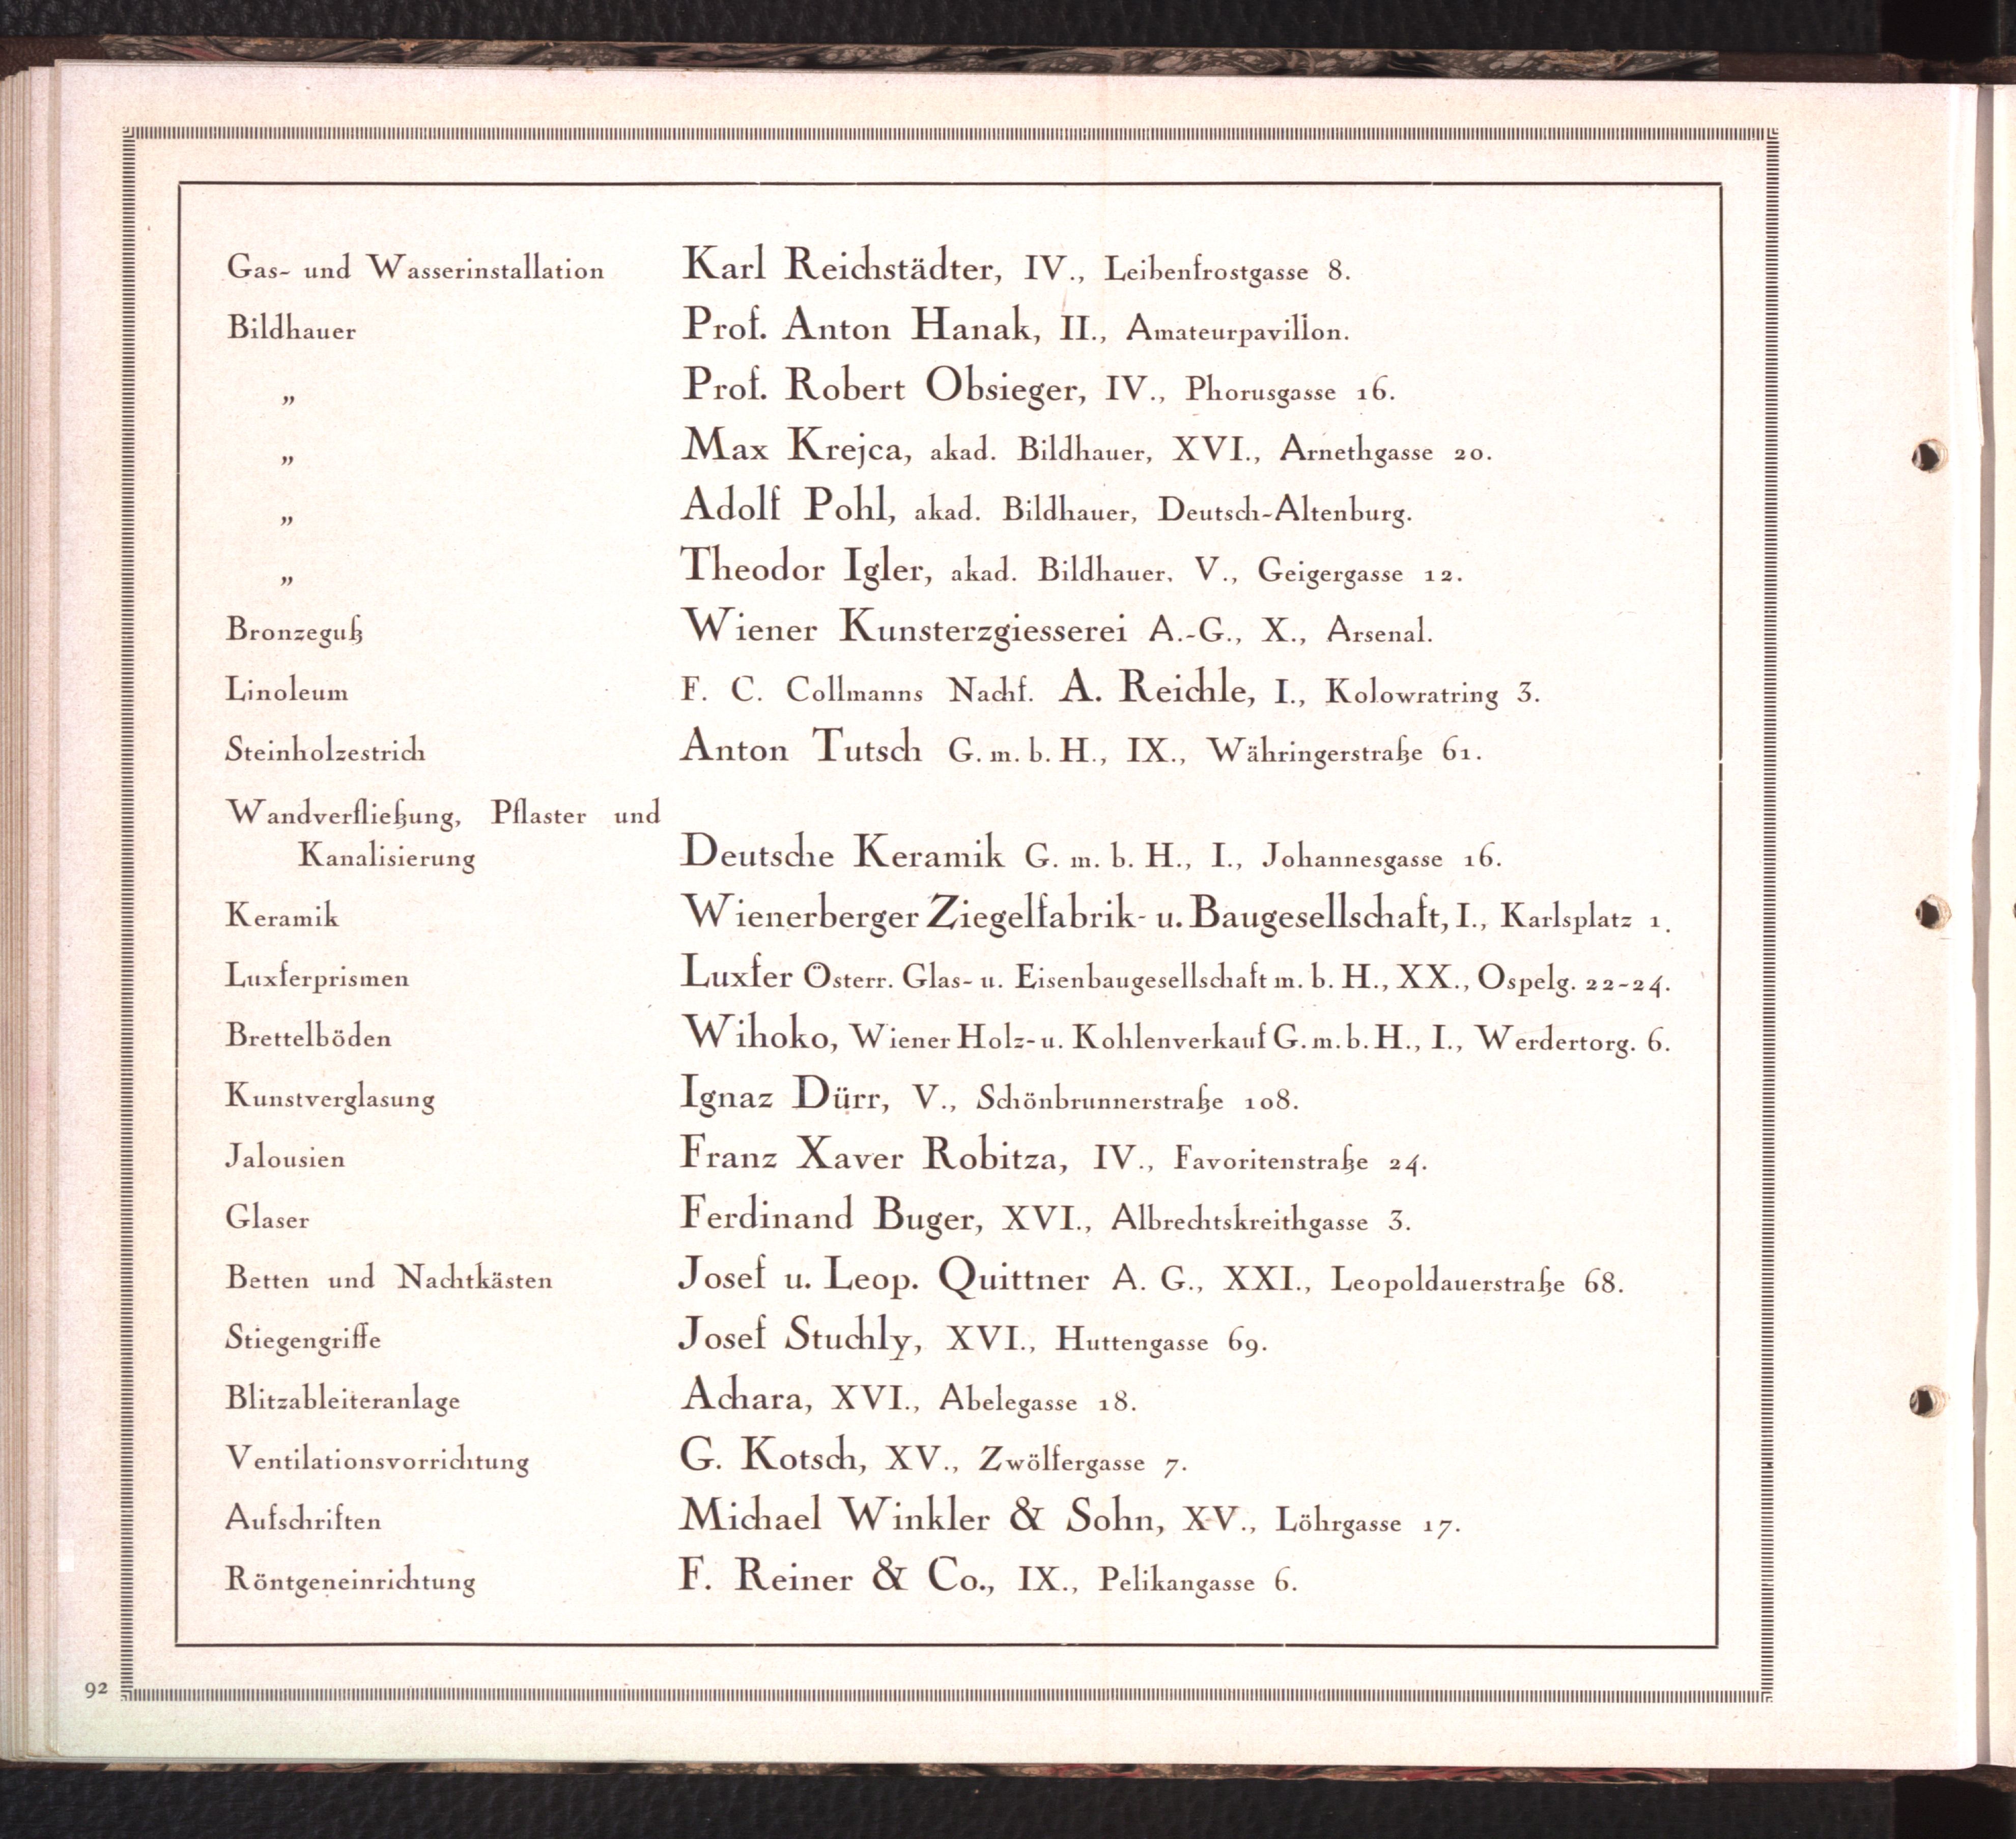 Gas- und Wasserinstallation Karl Reichstädter, IV., Leibenfrostgasse 8.
Bildhauer Prof. Anton Hanak, II., Amateurpavillon.
„ Prof. Robert Obsieger, IV., Phorusgasse 16.
„ Max Krejca, akad. Bildhauer, XVI., Arnethgasse 20.
„ Adolf Pohl, akad. Bildhauer, Deutsch-Altenburg.
„ Theodor Igler, akad. Bildhauer, V., Geigergasse 12.
Bronzeguß Wiener Kunsterzgiesserei A.-G., X., Arsenal.
Linoleum F. C. Collmanns Nachf. A. Reichle, I., Kolowratring 3.
Steinholzestrich Anton Tutsch G. m. b. H., IX., Währingerstraße 61.
Wandverfließung, Pflaster und
Kanalisierung Deutsche Keramik G. m. b. H., I., Johannesgasse 16.
Keramik Wienerberger Ziegelfabrik- u. Baugesellschaft, I., Karlsplatz 1.
Luxferprismen Luxfer Österr. Glas- u. Eisenbaugesellschaft m. b. H., XX., Ospelg. 22-24.
Brettelböden Wihoko, Wiener Holz- u. Kohlenverkauf G. m. b. H., I., Werdertorg. 6.
Kunstverglasung Ignaz Dürr, V., Schönbrunnerstraße 108.
Jalousien Franz Xaver Robitza, IV., Favoritenstraße 24.
Glaser Ferdinand Buger, XVI., Albrechtskreithgasse 3.
Betten und Nachtkästen Josef u. Leop. Quittner A. G., XXI., Leopoldauerstraße 68.
Stiegengriffe Josef Stuchly, XVI., Huttengasse 69.
Blitzableiteranlage Achara, XVI., Abelegasse 18.
Ventilationsvorrichtung G. Kotsch, XV., Zwölfergasse 7.
Aufschriften Michael Winkler & Sohn, XV., Löhrgasse 17.
Röntgeneinrichtung F. Reiner & Co., IX., Pelikangasse 6.
92